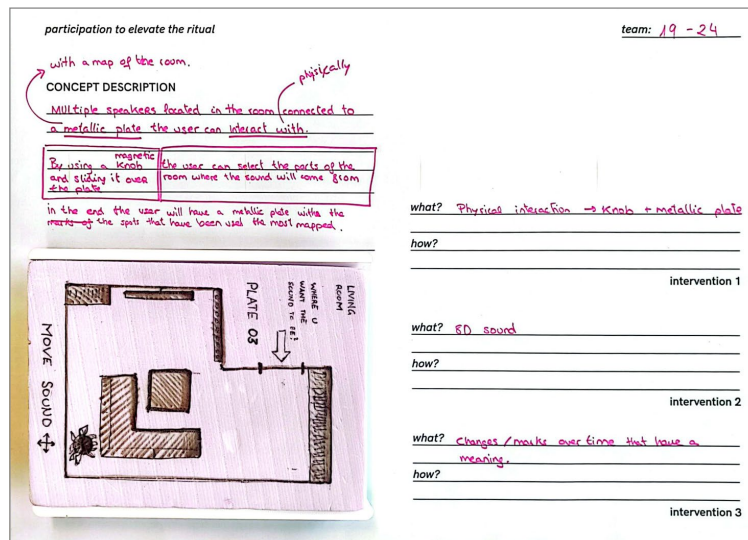 participation to elevate the ritual
team: 19 - 24
with a map of the room.
physically
CONCEPT DESCRIPTION
MULtiple speakers located in the room connected to
a metallic plate the user can interact with.
magnetic
By using a knob
and sliding it over
the plate
the user can select the parts of the
room where the sound will come from
in the end the user will have a metallic plate withs the
marks of the spots that have been used the most mapped.
LIVING
ROOM
WHERE U
WANT THE
SOUND TO BE?
PLATE 03
MOVE SOUND
what? Physical interaction → Knob + metallic plate
how?
intervention 1
what? 8D sound
how?
intervention 2
what? Changes / marks over time that have a
meaning.
how?
intervention 3